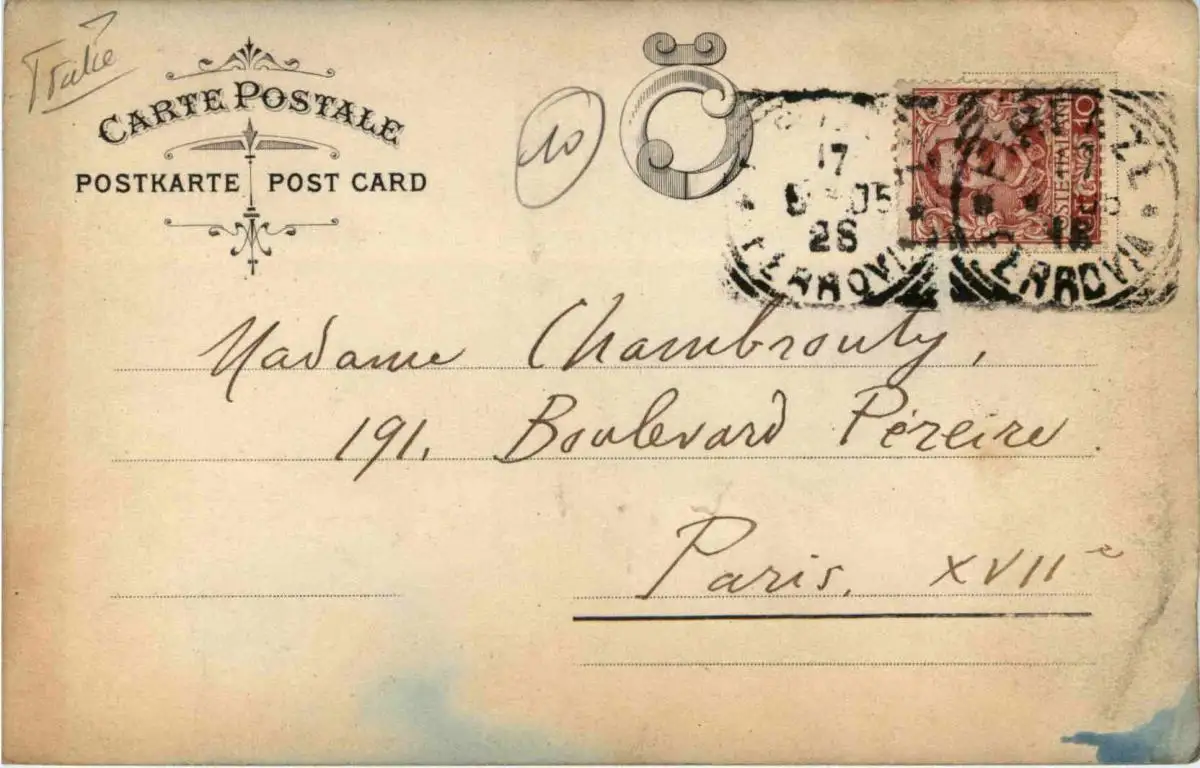 CARTE POSTALE
POSTKARTE POST CARD
10
17
05
28
FERROVIA
10
POSTE ITALIANE
18
FERROVIA
Madame Chambrouty,
191. Boulevard Péreire.
Paris. XVIIe